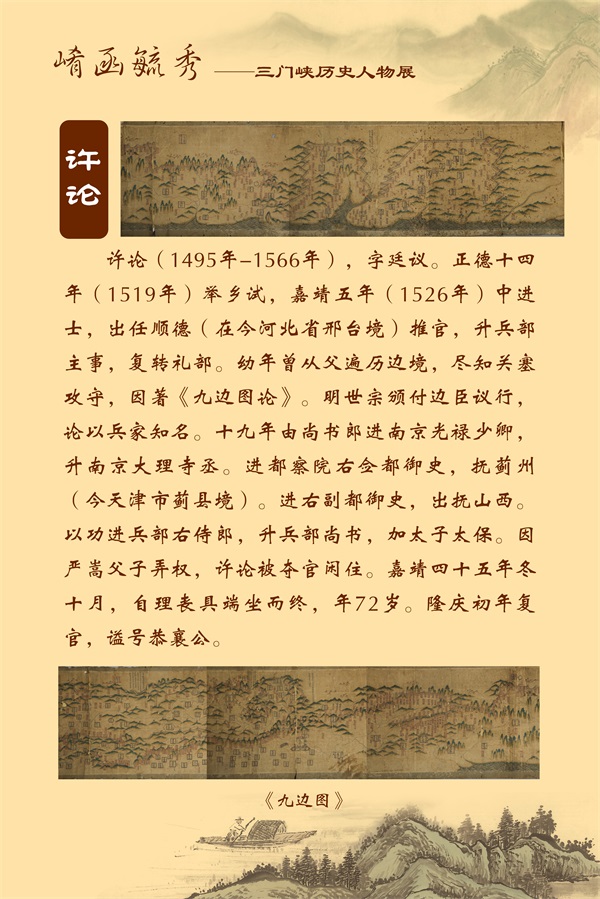 崤函毓秀 ——三门峡历史人物展
许论
许论（1495年-1566年），字廷议。正德十四
年（1519年）举乡试，嘉靖五年（1526年）中进
士，出任顺德（在今河北省邢台境）推官，升兵部
主事，复转礼部。幼年曾从父遍历边境，尽知关塞
攻守，因著《九边图论》。明世宗颁付边臣议行，
论以兵家知名。十九年由尚书郎进南京光禄少卿，
升南京大理寺丞。进都察院右佥都御史，抚蓟州
（今天津市蓟县境）。进右副都御史，出抚山西。
以功进兵部右侍郎，升兵部尚书，加太子太保。因
严嵩父子弄权，许论被夺官闲住。嘉靖四十五年冬
十月，自理丧具端坐而终，年72岁。隆庆初年复
官，谥号恭襄公。
《九边图》